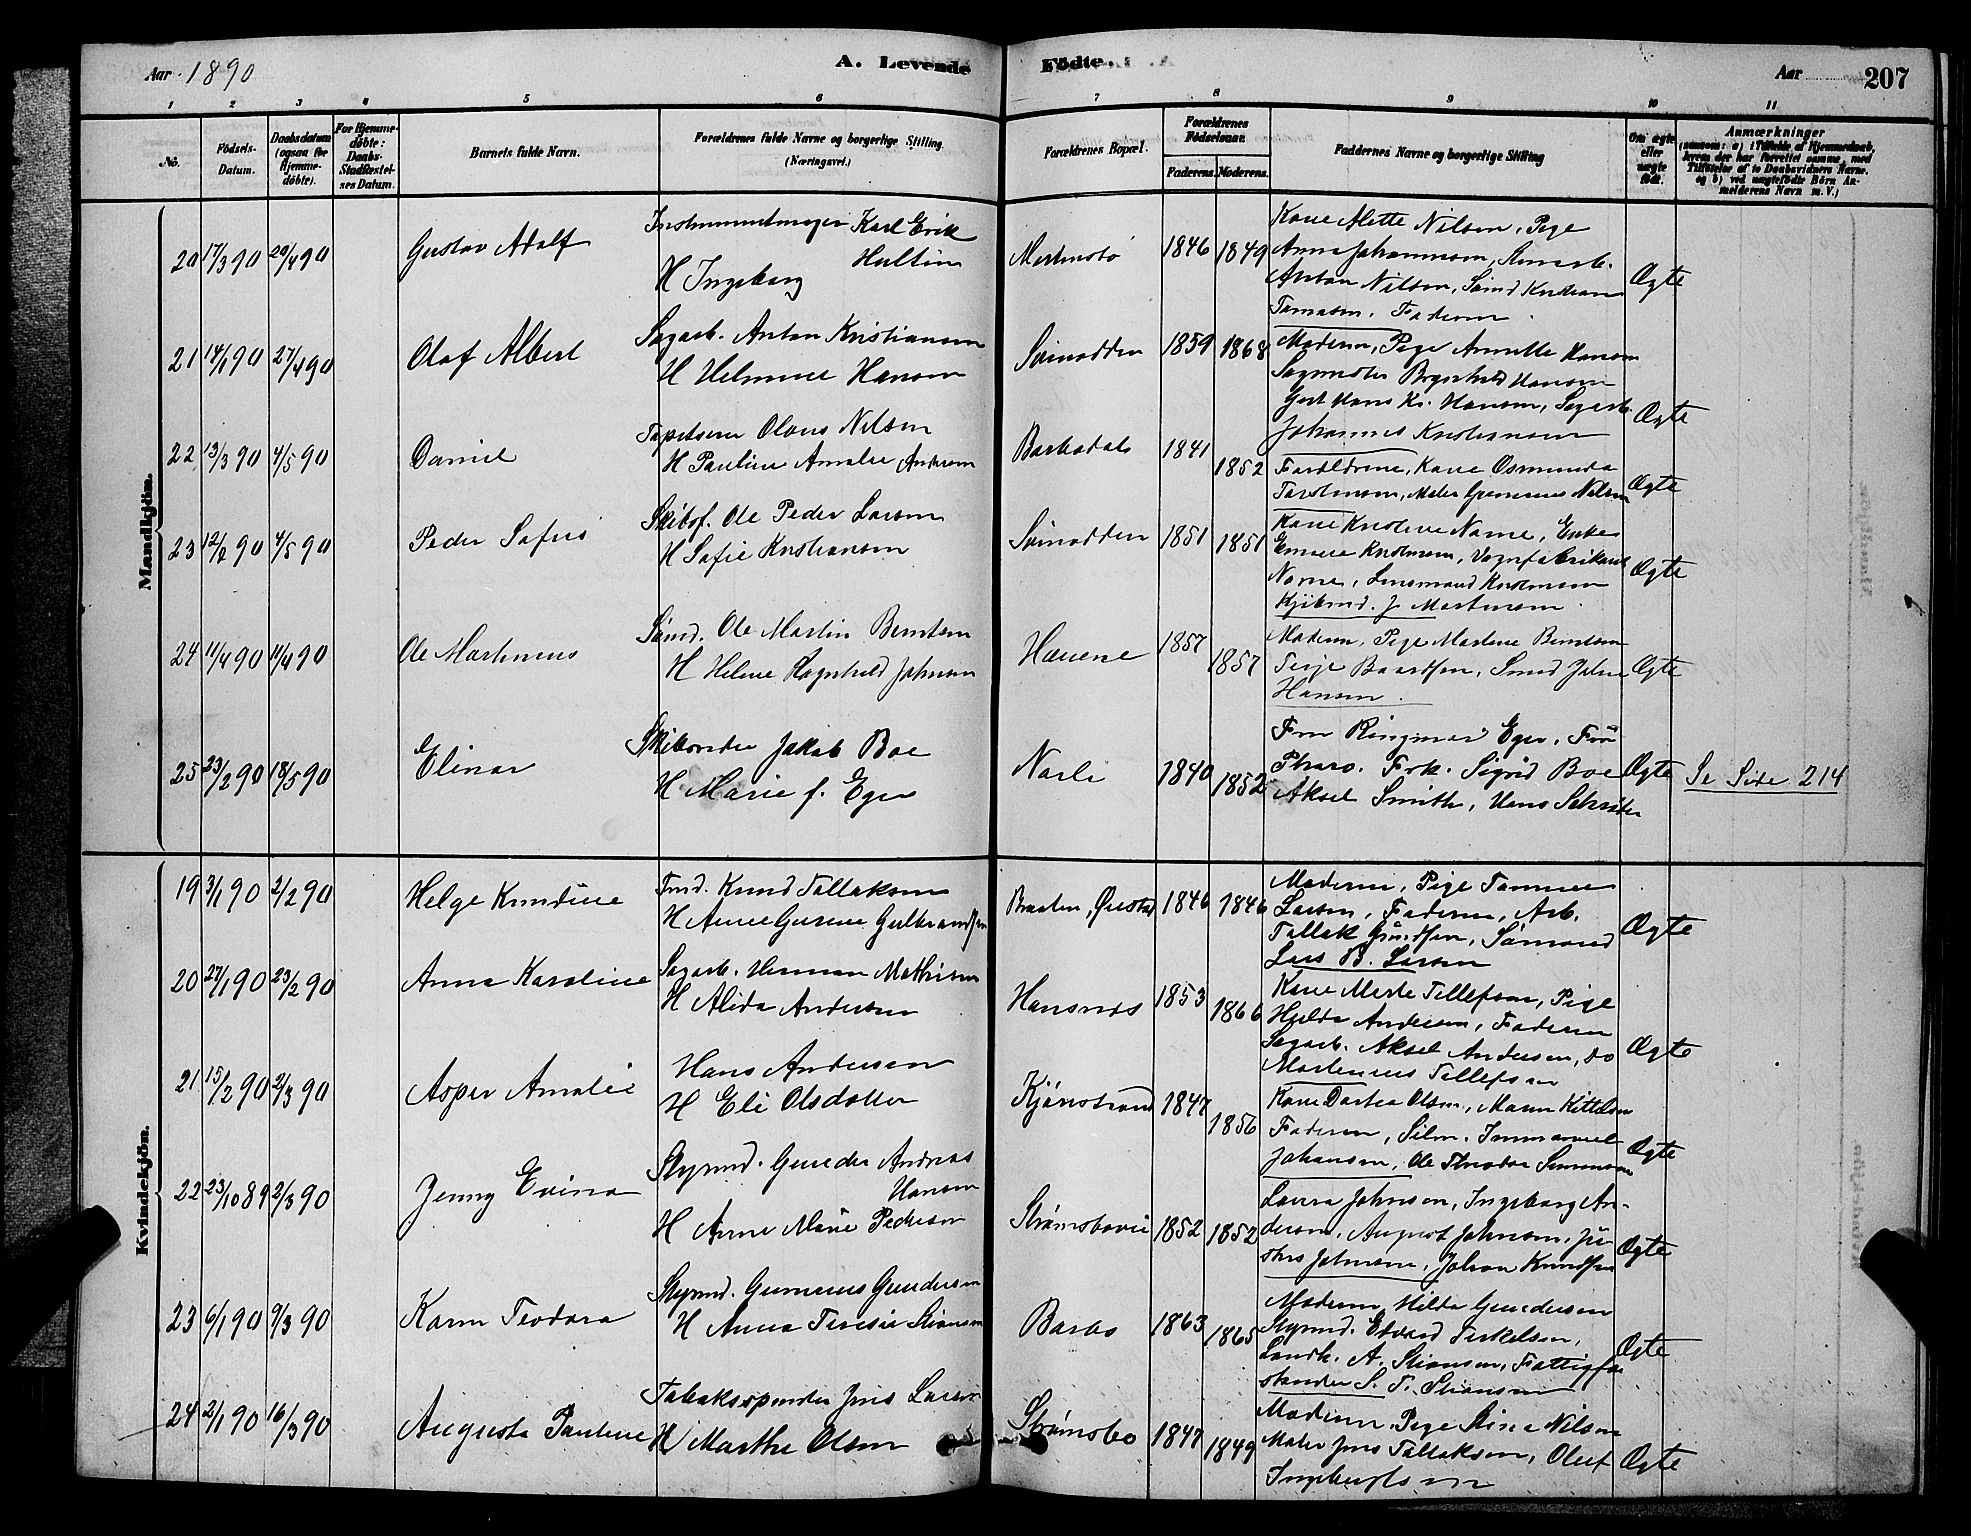 Aar 1890
A. Levende
Fødte.
Aar
207
1 2 3 4 5 6 7 8 9 10 11
No.
Fødsels-Datum.
Daabsdatum (ogsaa for Hjemme-døbte).
For Hjemme-døbte: Daabs-Stadfæstel-ses Datum.
Barnets fulde Navn.
Forældrenes fulde Navne og borgerlige Stilling (Næringsvei.)
Forældrenes Bopæl.
Forældrenes Fødselsaar.
Faderens. Moderens.
Faddernes Navne og borgerlige Stilling
Om ægte eller uægte født.
Anmærkninger
Mandkjøn.
20 17/3 90 20/4 90 Gustav Adolf
Instrumentmager Karl Erik
Hultin
H Ingeborg
1846 1849
Kone Alette Nilsen, Pige
Anna Johannesen,
Anton Nilsen, Sømd Kristian
Faderen
Ægte
21 14/1 90 27/4 90 Olaf Albert
Sagarb. Anton Kristiansen
H Helmine Hansen
Songodden 1859 1868
Moderen, Pige Annette Hansen
Hansen
Hans Kr. Hansen, Sagarb.
Johannes Kristiansen
Ægte
22 13/3 90 4/5 90 Daniel
Tapetserer Olaus Nilsen
H Pauline Amalie Andersen
Barbodal 1841 1852
Forældrene, Kone Osmunda
Maler Gunerius Nilsen
Ægte
23 12/2 90 4/5 90 Peder Sofus
Skibsf. Ole Peder Larsen
H Sofie Kristiansen
Songodden 1851 1851
Kone Kristine Name, Enke
Vognfabrikant
Name, Lensmand Kristensen
Kjøbmd. J. Mortensen
Ægte
24 11/4 90 11/4 90 Ole Martinius
Sømd. Ole Martin Berntsen
H Helene Ragnhild Johnsen
Havene 1857 1857
Moderen, Pige Martine Berntsen
Terje Baardsen, Smed John
Hansen
Ægte
25 23/2 90 18/5 90 Elinar
Skibsreder Jakob Boe
H Marie f. Eger
Narli 1840 1852
Fru Ringnes Eger, Frø
Pharo. Frk. Sigrid Boe
Aksel Smith, Hans Schrøder
Ægte
Se Side 214
Kvindekjøn.
19 3/1 90 2/2 90 Helge Knudine
Tmd. Knud Tallaksen
H Anne Gurine Gulbrandsen
Braaten, Øiestad 1846 1846
Moderen, Pige Tomine
Larsen, Faderen, Arb.
Tallak Gundersen, Sømand
Lars B. Larsen
Ægte
20 27/1 90 23/2 90 Anna Karoline
Sagarb. Herman Mathisen
H Alida Andersen
Hansnes 1853 1866
Kone Merte Tellefsen, Pige
Hulda Andersen, Faderen
Sagarb. Aksel Andersen, do
Martinius Tellefsen
Ægte
21 15/2 90 2/3 90 Asper Amalie
Hans Andersen
H Eli Olsdatter
Kjønstrand 1847 1856
Kone Dortea Olsen, Maren Kittelsen
Faderen, Immanuel
Johansen, Ole Theodor Simonsen
Ægte
22 23/10 89 2/3 90 Jenny Evina
Styrmd. Gunder Andreas
Hansen
H Anne Marie Pedersen
Strømsbovei 1852 1852
Laura Johnsen, Ingeborg An-
dersen, August Johnsen, Ju-
stus Johnsen, Johan Knudsen
Ægte
23 6/1 90 9/3 90 Karen Teodora
Styrmd. Gunerius Gundersen
H Anna Teresia Stiansen
Barbo 1863 1865
Moderen, Hilda Gundersen
Styrmd. Edvard Terkelsen,
Landh. A. Stiansen, Fattigfor-
stander S. T. Stiansen
Ægte
24 2/1 90 16/3 90 Augusta Pauline
Tobaksspinder Jens Larsen
H Marthe Olsen
Strømsbo 1847 1849
Moderen, Pige Stine Nilsen
Maler Jens Tallaksen, Oluf
Ingebrigtsen
Ægte